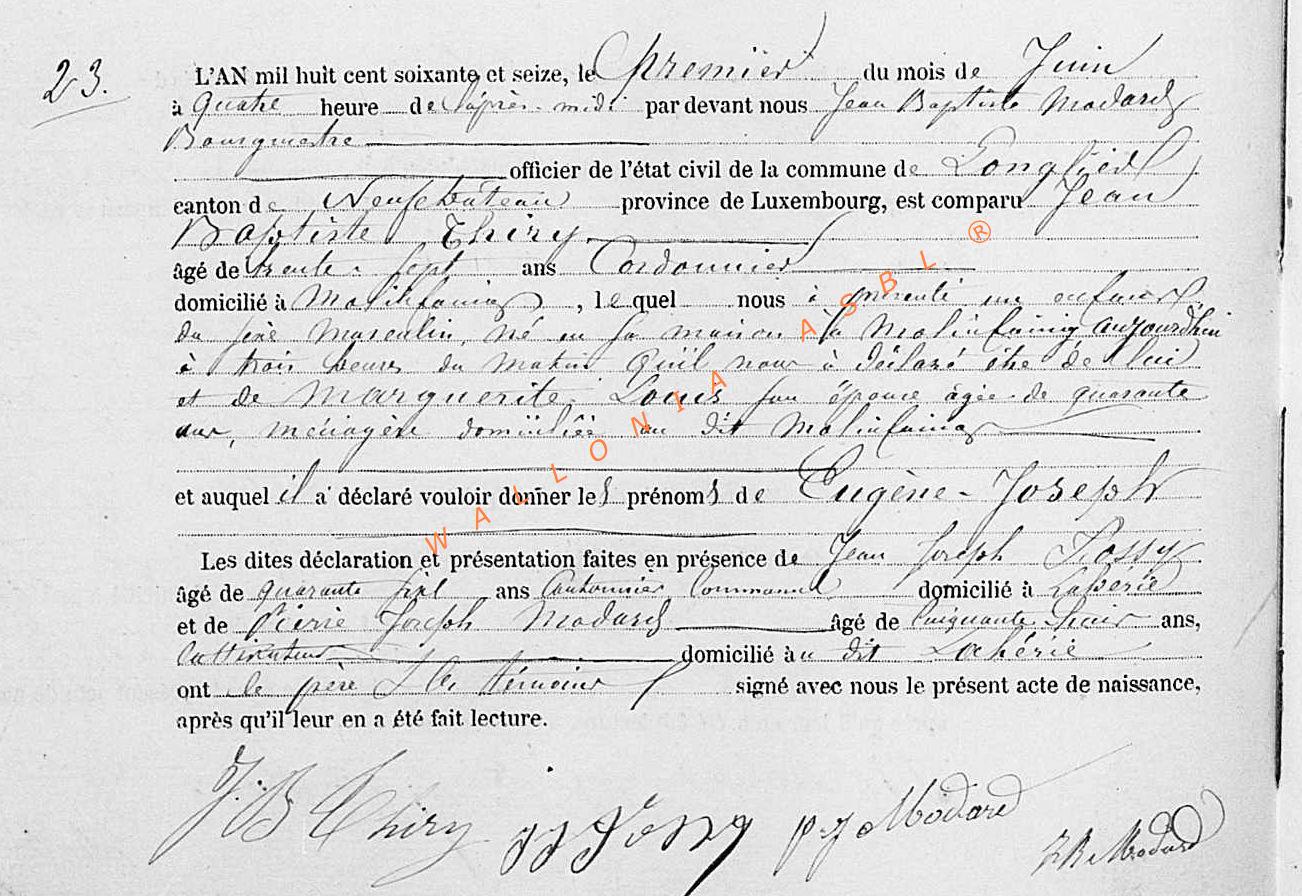 23.
L'AN mil huit cent soixante et seize, le premier du mois de Juin
à quatre heure de l'après-midi par devant nous Jean Baptiste Modard
Bourgmestre
officier de l'état civil de la commune de Longlier
canton de Neufchâteau province de Luxembourg, est comparu Jean
Baptiste Thiry
âgé de trente-sept ans Cordonnier
domicilié à Molinfaing, lequel nous à présenté un enfant
du sexe masculin, né en sa maison à Molinfaing aujourd'hui
à trois heures du matin qu'il nous à déclaré être de lui
et de Marguerite Louis son épouse âgée de quarante
ans, ménagère domiciliée au dit Molinfaing
et auquel il a déclaré vouloir donner les prénoms de Eugène-Joseph
Les dites déclaration et présentation faites en présence de Jean Joseph Fossy
âgé de quarante sept ans Cantonnier Communal domicilié à Lahérie
et de Pierre Joseph Modard âgé de Cinquante ans,
Cultivateur domicilié au dit Lahérie
ont le père & les témoins signé avec nous le présent acte de naissance,
après qu'il leur en a été fait lecture.
J. B. Thiry JJ Fossy p-J Modard J B Modard
WALLONIA ASBL ®